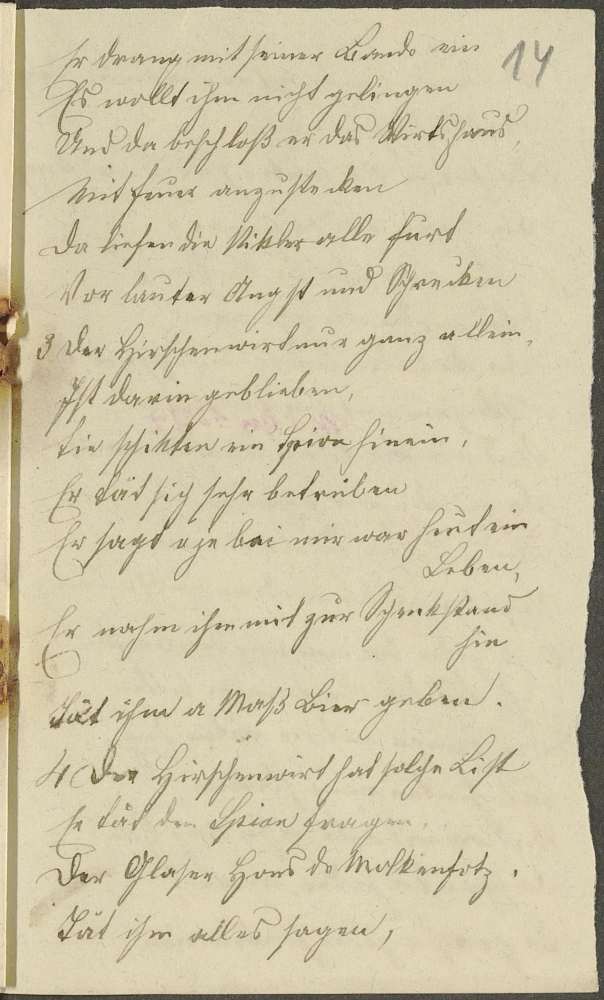 14
Er drang mit seiner Bande ein
Es wollt ihm nicht gelingen
Und da beschloß er das Wirtshaus,
Mit Feuer anzustecken
Da liefen die alle furt
Vor lauter Angst und Schrecken
3 Der Hirschenwirt nur ganz allein,
Ist darin geblieben,
Sie schikten ein Spion hinein,
Er tät sich sehr betrüben
Er sagt bei mir war heut ein
Leben,
Er nahm ihm mit zur Schenkstand
hin
Tät ihm a Maß Bier geben.
4 Der Hirschenwirt hat solche List
Er tät den Spion fragen,
Der Glaser Hans de
Tät ihm alles sagen,